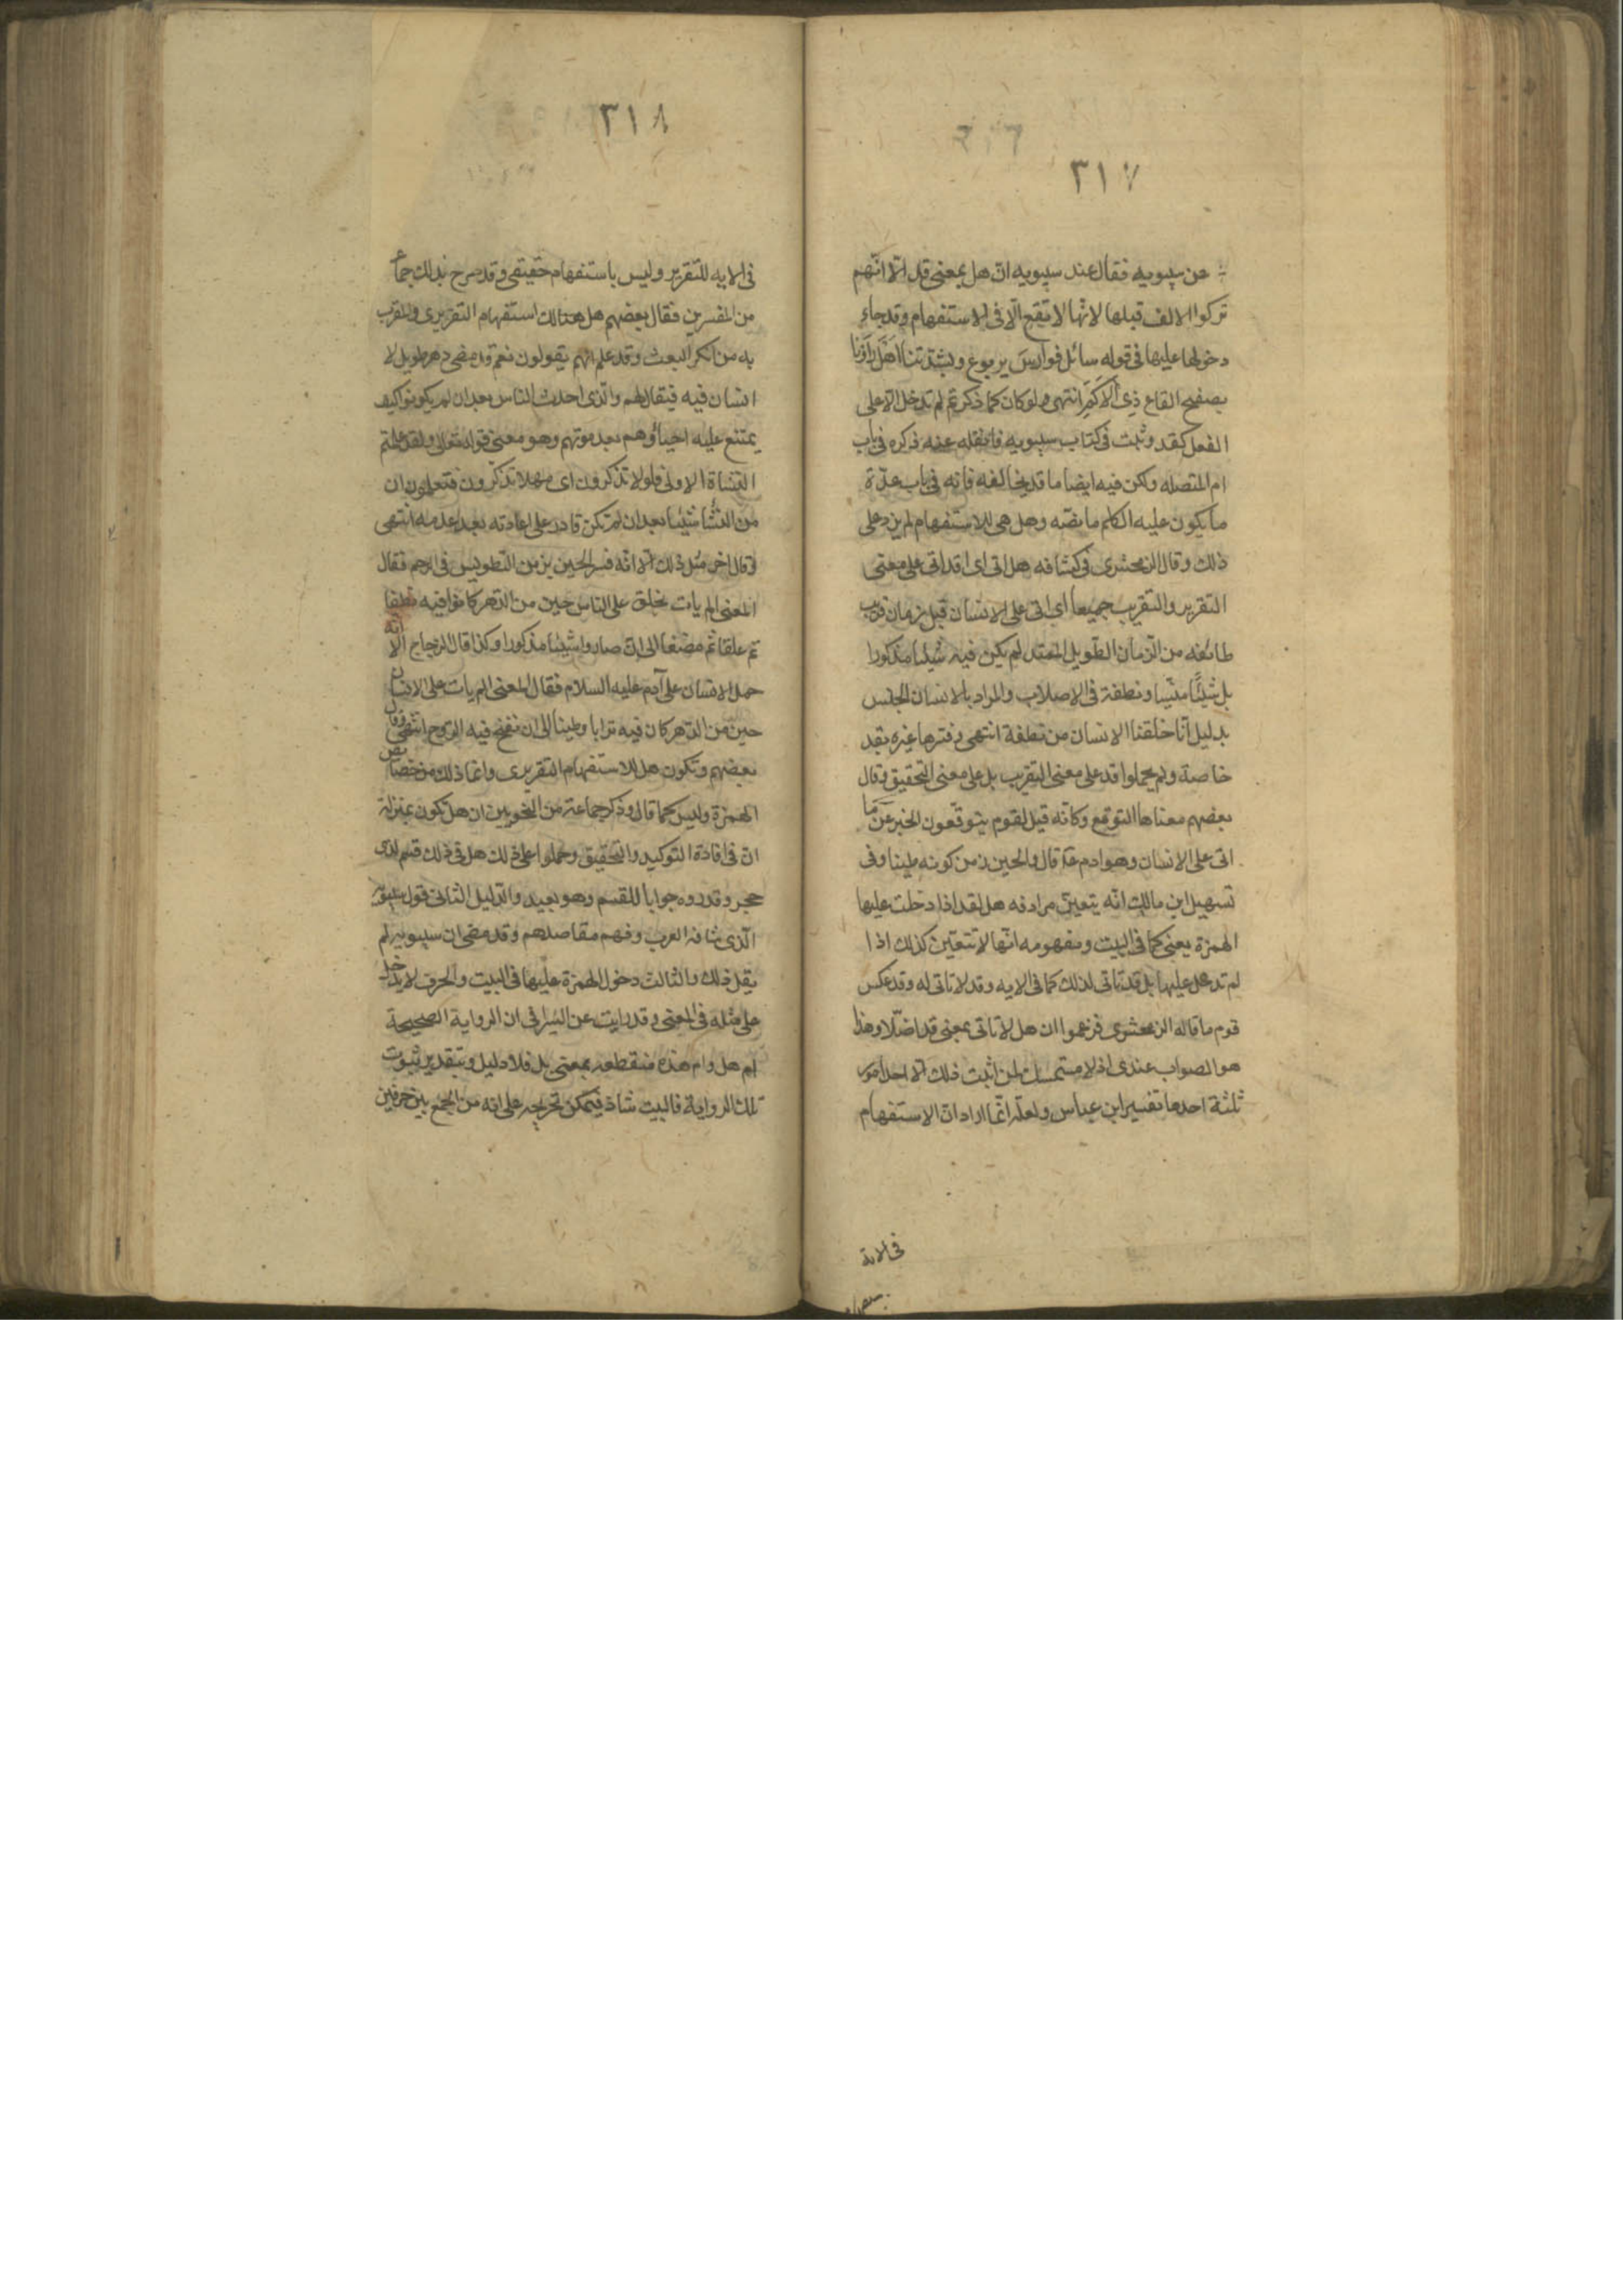 ٣١٧
عن سيبويه فقال عند سيبويه ان هل بمعنى قد الا انهم
تركوا الالف قبلها لانها لا تقع الا فى الاستفهام وقد جاء
دخولها عليها فى قوله سائل فوارس يربوع بشدتنا اهل راونا
بصفح القاع ذى الاكم انتهى ولو كان كما ذكر لم تدخل الا على
الفعل كقد وثبت فى كتاب سيبويه ما نقله عنه ذكره فى باب
ام المتصله ولكن فيه ايضا ما قد يخالفه فانه فى باب عدة
ما يكون عليه الكلم ما نصه وهل هى للاستفهام لم يزد على
ذلك وقال الزمخشرى فى كشافه هل اتى اى اقد اتى على معنى
التقرير والتقريب جميعا اى اتى على الانسان قبل زمان قريب
طائفه من الزمان الطويل الممتد لم يكن فيه شيئا مذكورا
بل شيئا منسيا ونطفة فى الاصلاب والمراد بالانسان الجنس
بدليل انا خلقنا الانسان من نطفة انتهى وفسرها غيره بقد
خاصة ولم يحملوا قد على معنى التقريب بل على معنى التحقيق وقال
بعضهم معناها التوقع وكانه قيل لقوم يتوقعون الخبر عن ما
اتى على الانسان وهو ادم قال والحين زمن كونه طينا وفى
تسهيل ابن مالك انه يتعين مرادفه هل لقد اذا دخلت عليها
الهمزة يعنى كما فى البيت ومفهومه انها لا تتعين كذلك اذا
لم تدخل عليها بل قد تاتى لذلك كما فى الايه وقد لا تاتى له وقد عكس
قوم ما قاله الزمخشرى فزعموا ان هل لا تاتى بمعنى قد اصلا وهذا
هو الصواب عندى اذ لا متمسك لمن اثبت ذلك الا احد امور
ثلثة احدها تفسير ابن عباس ولعله انما اراد ان الاستفهام
فى الاية
٣١٨
فى الايه للتقرير وليس باستفهام حقيقى وقد صرح بذلك جماعة
من المفسرين فقال بعضهم هل هنا للاستفهام التقريرى والمقرر
به من انكر البعث وقد علم انهم يقولون نعم قد مضى دهر طويل لا
انسان فيه فيقال لهم والذى احدث الناس بعد ان لم يكونوا كيف
يمتنع عليه احياؤهم بعد موتهم وهو معنى قوله تعالى ولقد علمتم
النشاة الاولى فلولا تذكرون اى فهلا تذكرون فتعلمون ان
من انشا شيئا بعد ان لم يكن قادر على اعادته بعد عدمه انتهى
وقال اخر مثل ذلك الا انه فسر الحين بزمن التطوير فى الرحم فقال
المعنى الم يات على الناس حين من الدهر كانوا فيه نطفا
ثم علقا ثم مضغا الى ان صاروا شيئا مذكورا وكذا قال الزجاج الا انه
حمل الانسان على آدم عليه السلام فقال المعنى الم يات على الانسان
حين من الدهر كان فيه ترابا وطينا الى ان نفخ فيه الروح انتهى وقال
بعضهم وتكون هل للاستفهام التقريرى وانما ذلك من خصائص
الهمزة وليس كما قال وذكر جماعة من النحويين ان هل تكون بمنزلة
ان فى افادة التوكيد والتحقيق وحملوا على ذلك هل فى ذلك قسم لذى
حجر وقدروه جوابا للقسم وهو بعيد والدليل الثانى قول سيبويه
الذى شافه العرب وفهم مقاصدهم وقد مضى ان سيبويه لم
يقل ذلك والثالث دخول الهمزة عليها فى البيت والحرف لا يدخل
على مثله فى المعنى وقد رايت عن السيرافى ان الرواية الصحيحة
ام هل وام هذه منقطعه بمعنى بل فلا دليل وبتقدير ثبوت
تلك الرواية فالبيت شاذ فيمكن تخريجه على انه من الجمع بين حرفين